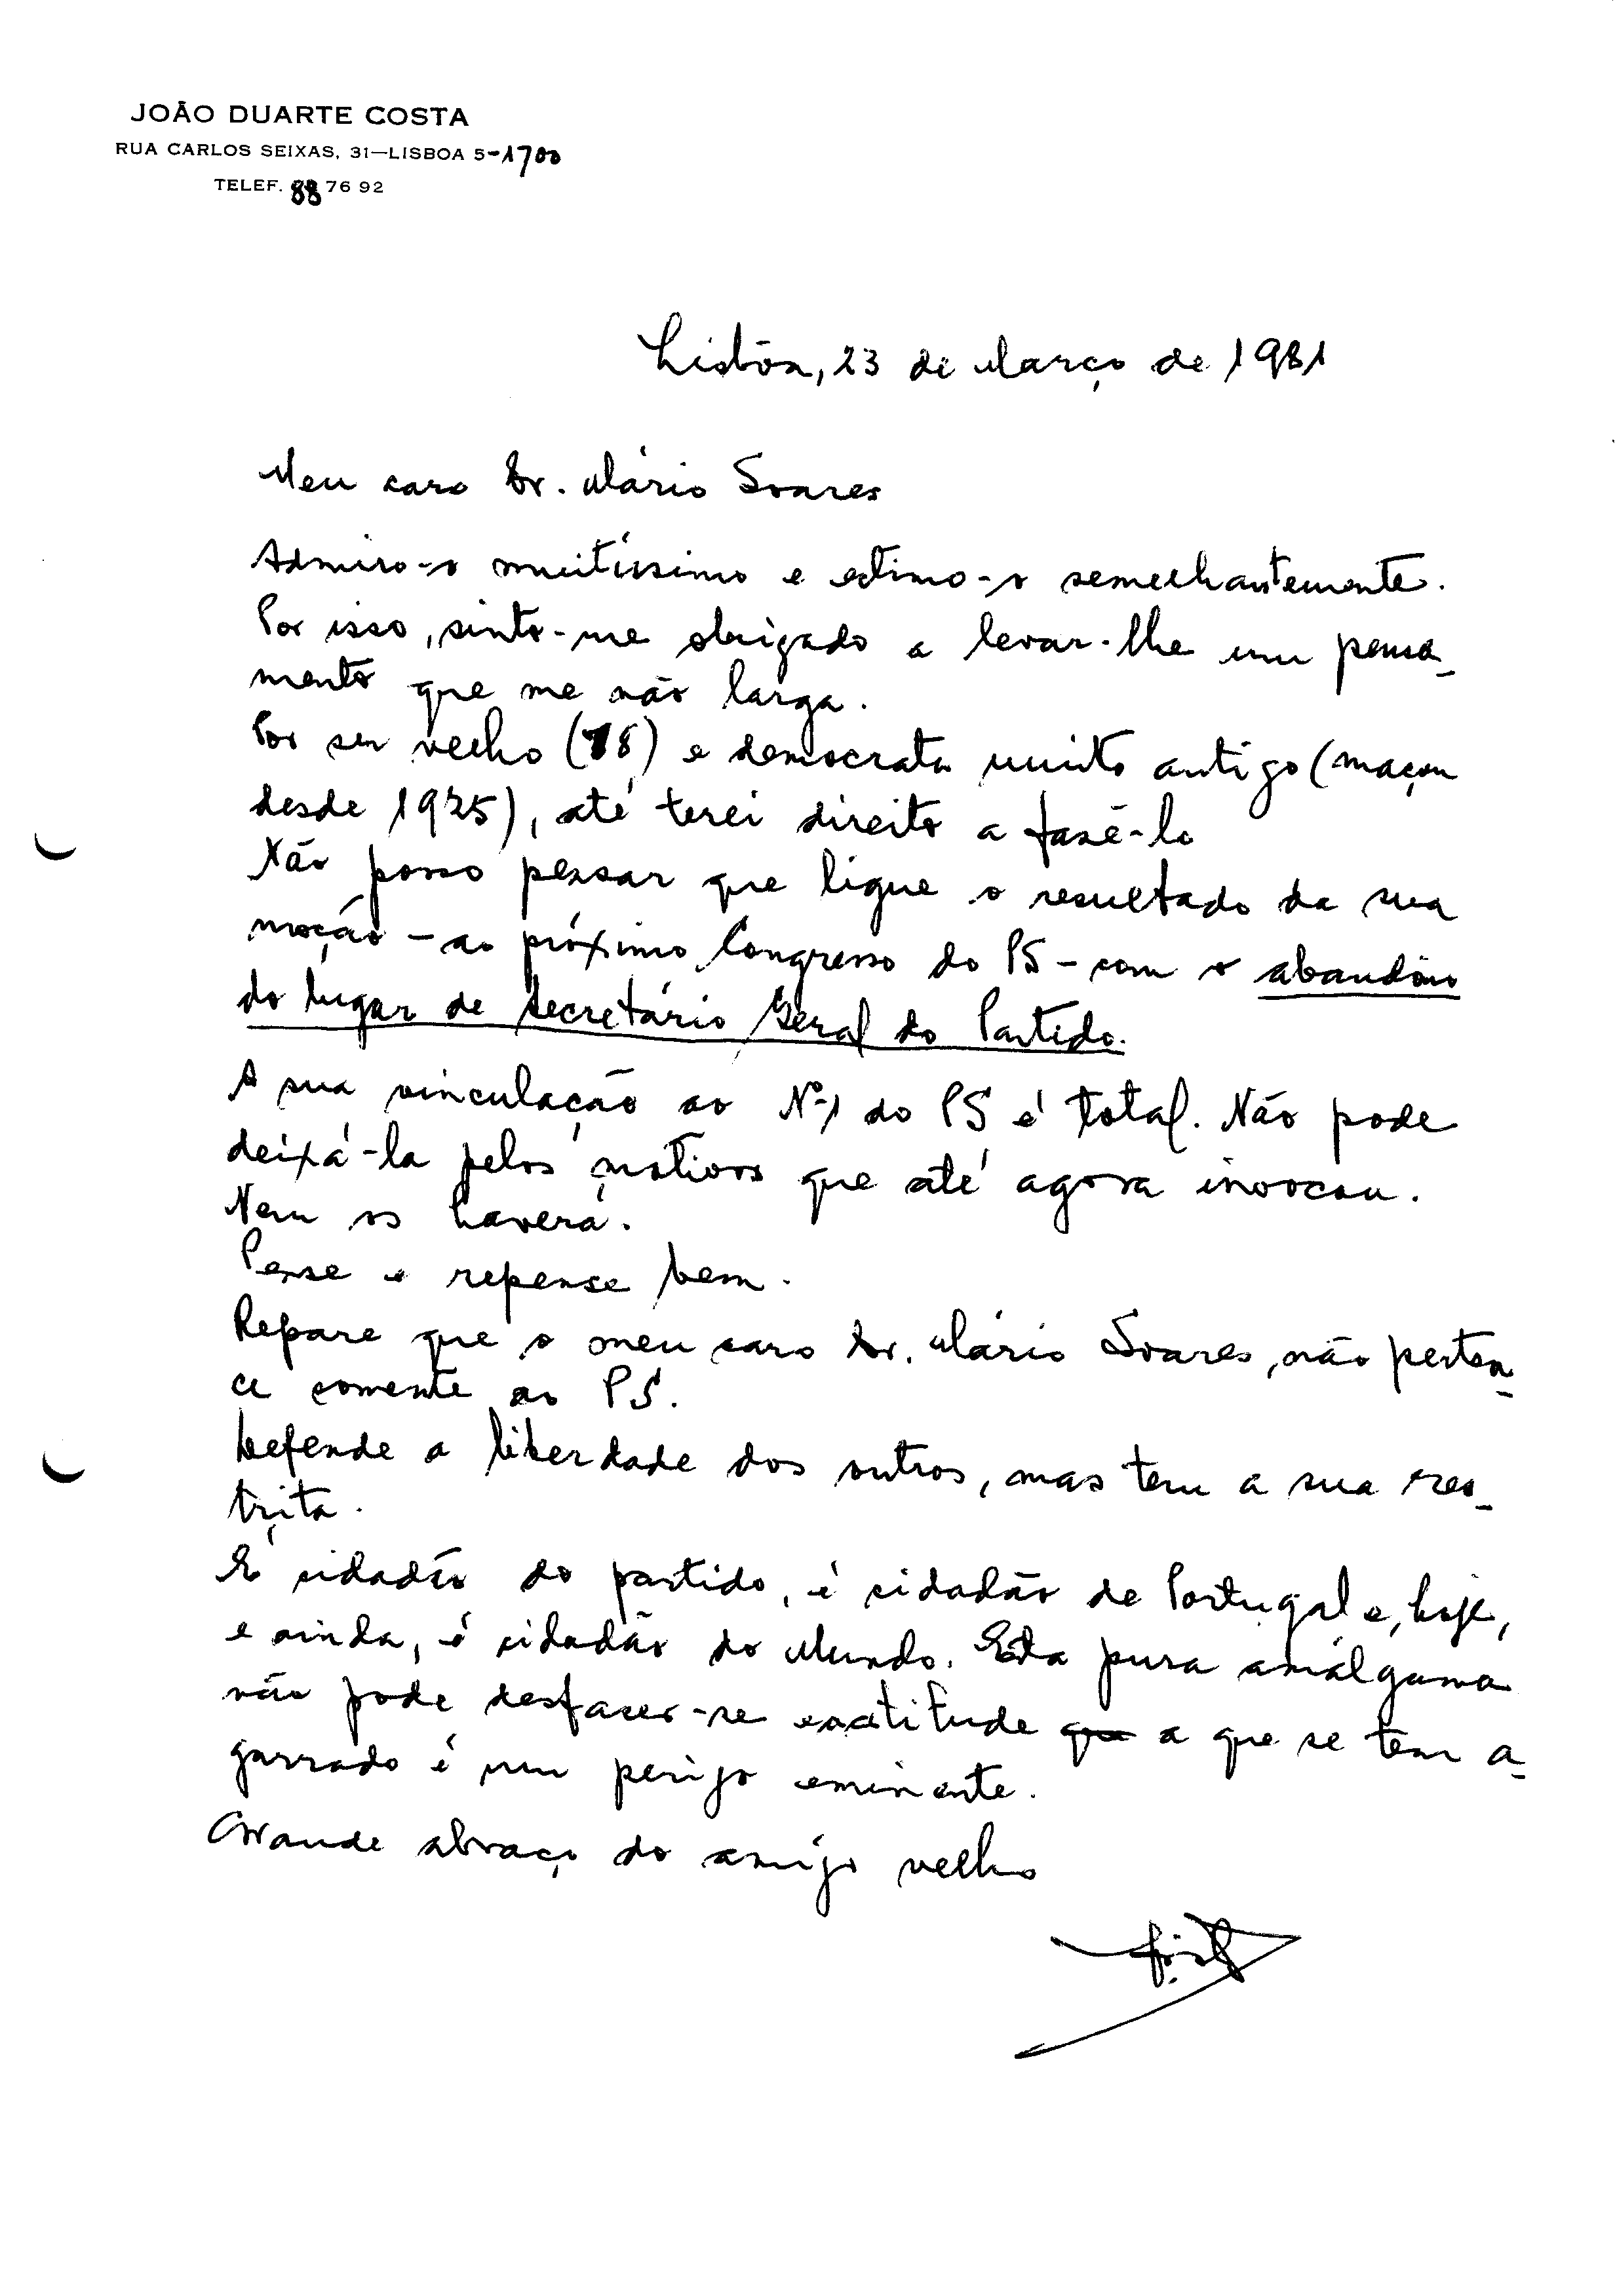 JOÃO DUARTE COSTA
RUA CARLOS SEIXAS, 31—LISBOA 5-1700
TELEF. 88 76 92
Lisbôa, 23 de Março de 1981
Meu caro Dr. Mário Soares
Admiro-o muitíssimo e estimo-o semelhantemente.
Por isso, sinto-me obrigado a levar-lhe um pensa-
mento que me não larga.
Por ser velho (78) e democrata muito antigo (maçon
desde 1925), até terei direito a fazê-lo
Não posso pensar que ligue o resultado da sua
moção - ao próximo Congresso do PS - com o abandôno
do lugar de Secretário Geral do Partido.
A sua vinculação ao Nº1 do PS é total. Não pode
deixá-la pelos motivos que até agora invocou.
Nem os haverá.
Pense e repense bem.
Repare que o meu caro Dr. Mário Soares, não perten-
ce somente ao PS.
Defende a liberdade dos outros, mas tem a sua res-
trita.
É cidadão do partido, é cidadão de Portugal e, hoje,
e ainda, é cidadão do Mundo. Esta pura amálgama
não pode desfazer-se e a atitude que a que se tem a-
garrado é um perigo eminente.
Grande abraço do amigo velho